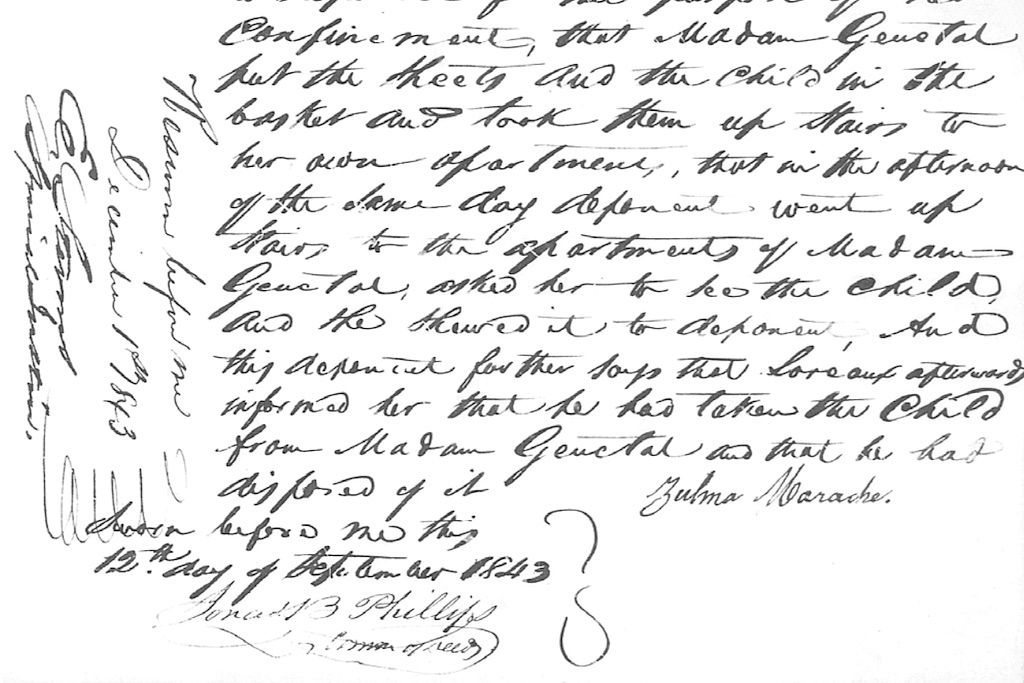 Confinement, that Madam Genetal
put the sheets and the child in the
basket and took them up stairs to
her own apartment, that in the afternoon
of the same day deponent went up
stairs to the apartments of Madam
Genetal, asked her to see the child,
and she shewed it to deponent, And
this deponent further says that Loreaux afterwards
informed her that he had taken the child
from Madam Genetal and that he had
disposed of it
Zulma Marache.
Sworn before me this
12th day of September 1843
B Phillips
Comm of deeds
Sworn before me
December 1 1843